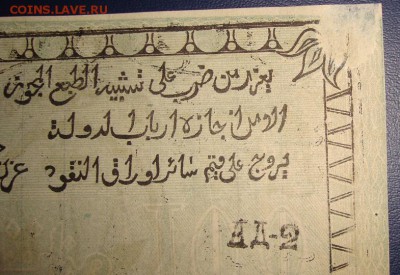 COINS.LAVE.RU
يعزر من ضرب على تشبيه الطبع
اجازه ارباب الدولة
يروج على قيم سائر اوراق النقود
АД-2